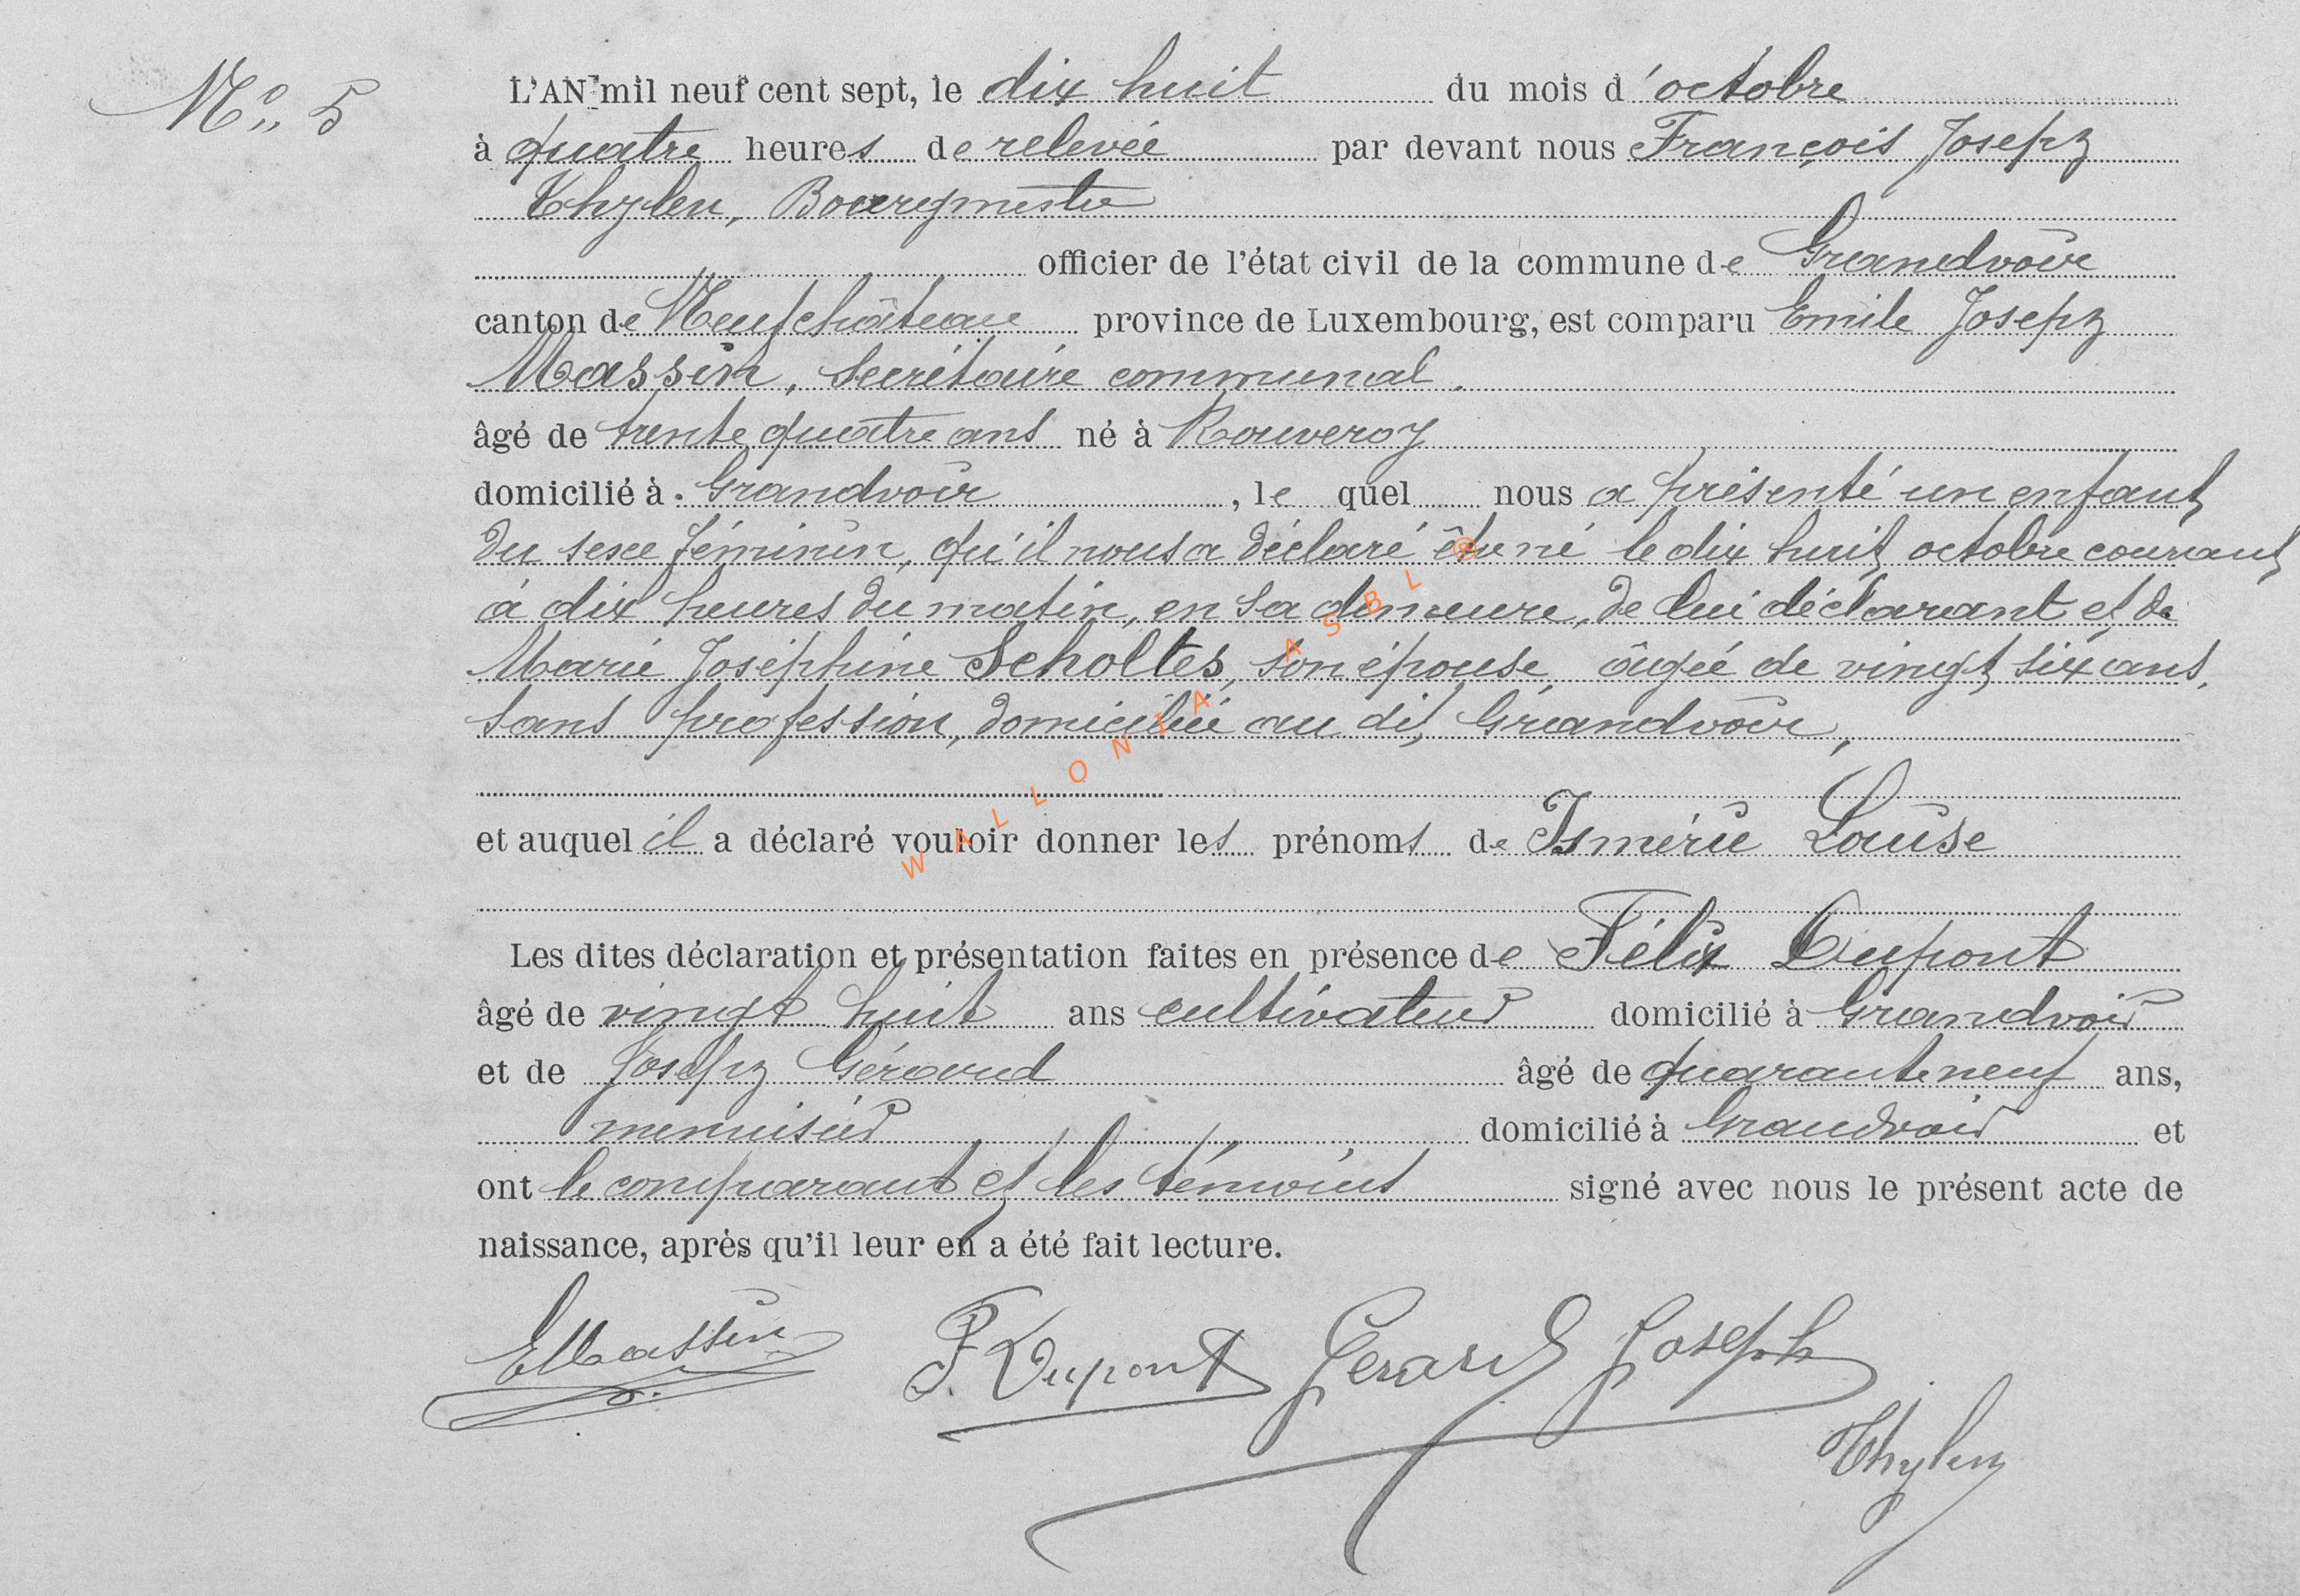 N° 5
L'AN mil neuf cent sept, le dix huit du mois d'octobre
à quatre heures de relevée par devant nous François Joseph
Thylen, Bourgmestre
officier de l'état civil de la commune de Grandvoir
canton de Neufchâteau province de Luxembourg, est comparu Emile Joseph
Massin, Secrétaire communal.
âgé de trente quatre ans né à Rouveroy
domicilié à Grandvoir, le quel nous a présenté un enfant
du sexe féminin, qu'il nous a déclaré être né le dix huit octobre courant
à dix heures du matin, en sa demeure, de lui déclarant et de
Marie Joséphine Scholtes, son épouse, âgée de vingt six ans,
sans profession, domiciliée au dit Grandvoir,
et auquel il a déclaré vouloir donner les prénoms de Ismérie Louise
Les dites déclaration et présentation faites en présence de Félix Dupont
âgé de vingt huit ans cultivateur domicilié à Grandvoir
et de Joseph Gérard âgé de quarante neuf ans,
menuisier domicilié à Grandvoir et
ont le comparant et les témoins signé avec nous le présent acte de
naissance, après qu'il leur en a été fait lecture.
EMassin F. Dupont Gerard Joseph
Thylen
WALLONIA ASBL ®